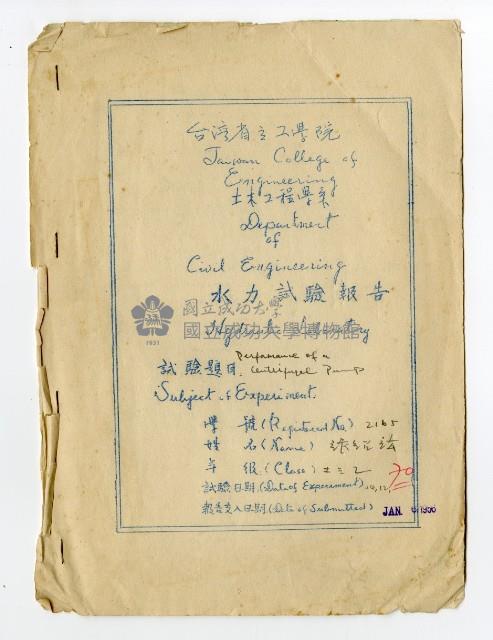 台湾省立工學院
Taiwan College of
Engineering
土木工程學系
Department
of
Civil Engineering
水力試驗報告
國立成功大學
國立成功大學博物館
1931
Hydraulic Laboratory
試驗題目 Performance of a
Centrifugal Pump
Subject of Experiment.
學 號 (Registered No.) 2165
姓 名 (Name) 張
年 級 (Class) 土三乙
70
試驗日期 (Date of Experiment)
報告交入日期 (Date of Submitted) JAN. 6 1956